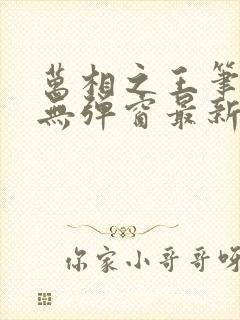 萬相之王筆
無彈窗最新
你家小哥哥呀